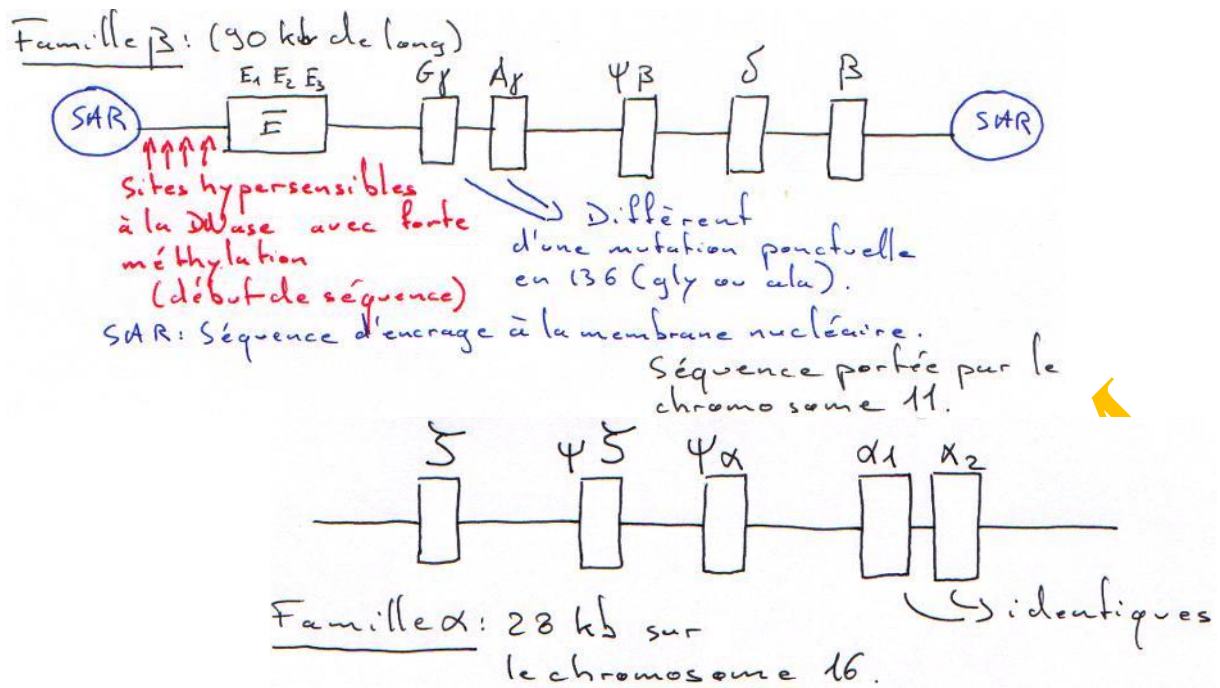 Famille β: (90 kb de long)
E1 E2 E3 Gγ Aγ ΨB δ β
SAR E SAR
Sites hypersensibles
à la DNase avec forte
méthylation
(début de séquence)
Diffèrent
d'une mutation ponctuelle
en 136 (gly ou ala).
SAR: Séquence d'encrage à la membrane nucléaire.
Séquence portée par le
chromosome 11.
ζ Ψζ Ψα α1 α2
identiques
Famille α: 28 kb sur
le chromosome 16.